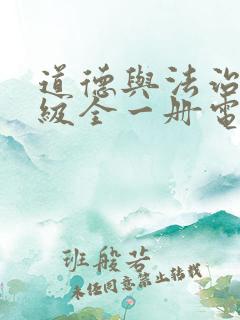 道德與法治
級全一册電
班般若
未任同意禁止转载